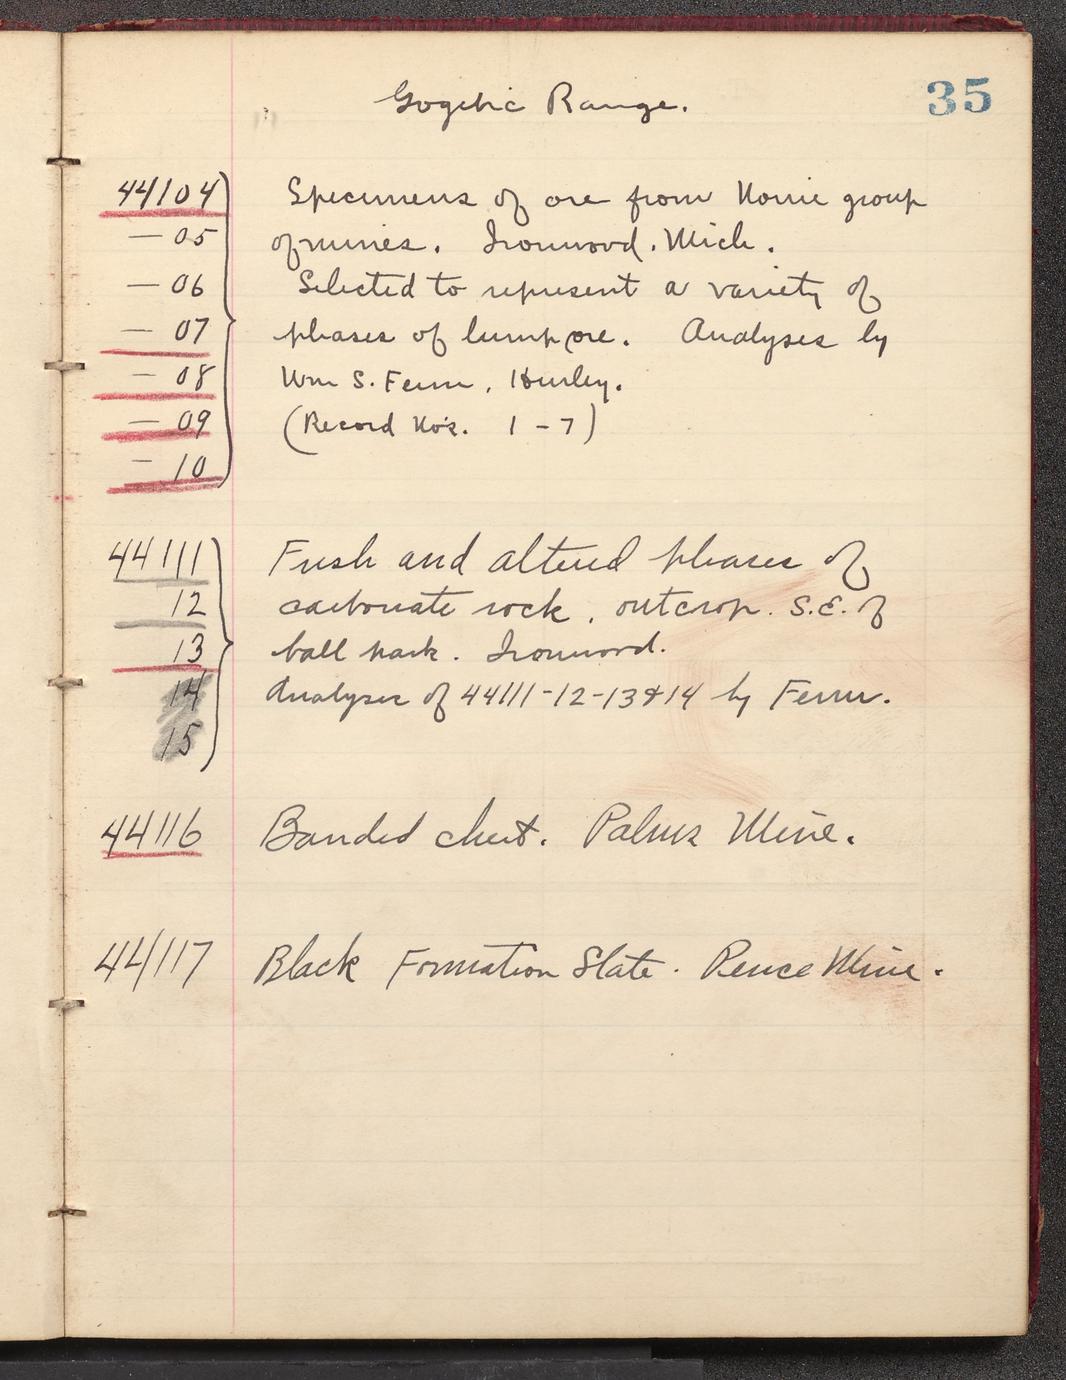 35
Gogebic Range.
44104 Specimens of ore from Norrie group
— 05 of mines. Ironwood. Mich.
— 06 Selected to represent a variety of
— 07 phases of lump ore. Analyses by
— 08 Wm S. Fenn, Hurley.
— 09 (Record No's. 1 – 7)
— 10
44111 Fresh and altered phases of
12 carbonate rock, outcrop. S.E. of
13 ball park. Ironwood.
14 Analyses of 44111-12-13&14 by Fenn.
15
44116 Banded chert. Palms Mine.
44117 Black Formation Slate. Pence Mine.